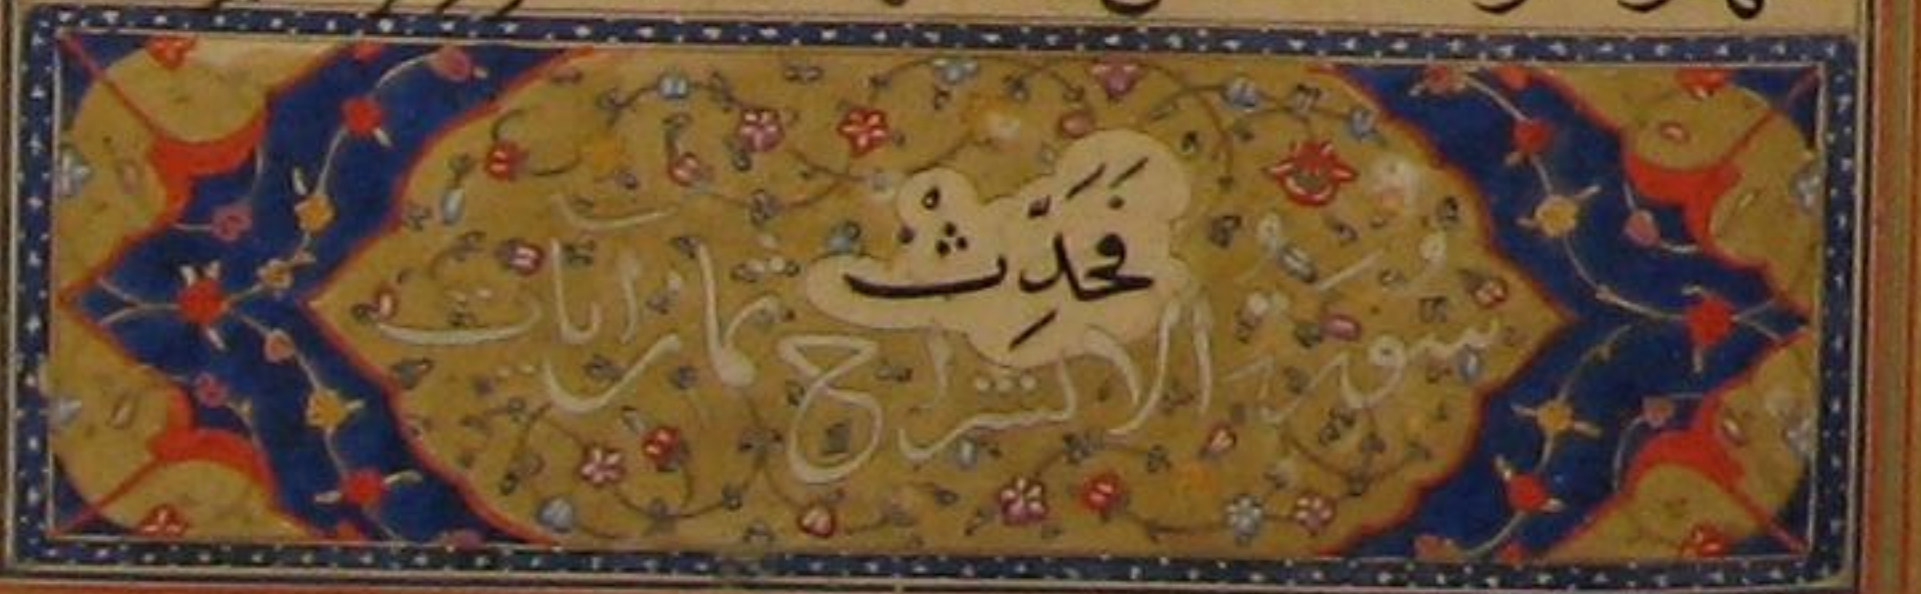 فَحَدِّثْ
سورة الانشراح ثمان آیات